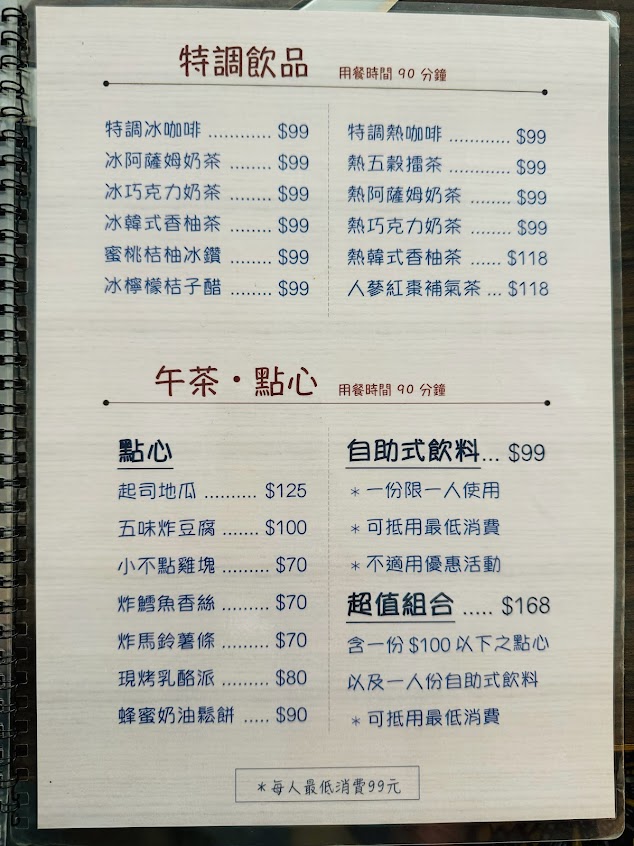 特調飲品 用餐時間 90 分鐘
特調冰咖啡 ............ $99
冰阿薩姆奶茶 ........ $99
冰巧克力奶茶 ........ $99
冰韓式香柚茶 ........ $99
蜜桃桔柚冰鑽 ........ $99
冰檸檬桔子醋 ........ $99
特調熱咖啡 ............ $99
熱五穀擂茶 ............ $99
熱阿薩姆奶茶 ......... $99
熱巧克力奶茶 ......... $99
熱韓式香柚茶 ...... $118
人蔘紅棗補氣茶 ... $118
午茶・點心 用餐時間 90 分鐘
點心
起司地瓜 .......... $125
五味炸豆腐 ....... $100
小不點雞塊 ......... $70
炸鱈魚香絲 ......... $70
炸馬鈴薯條 ......... $70
現烤乳酪派 ......... $80
蜂蜜奶油鬆餅 ..... $90
自助式飲料... $99
＊一份限一人使用
＊可抵用最低消費
＊不適用優惠活動
超值組合 ..... $168
含一份 $100 以下之點心
以及一人份自助式飲料
＊可抵用最低消費
＊每人最低消費99元